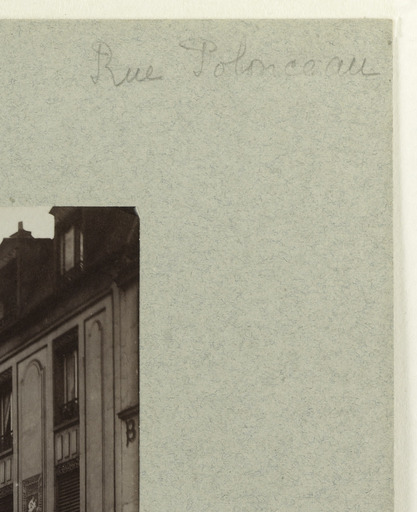 Rue Polonceau
B